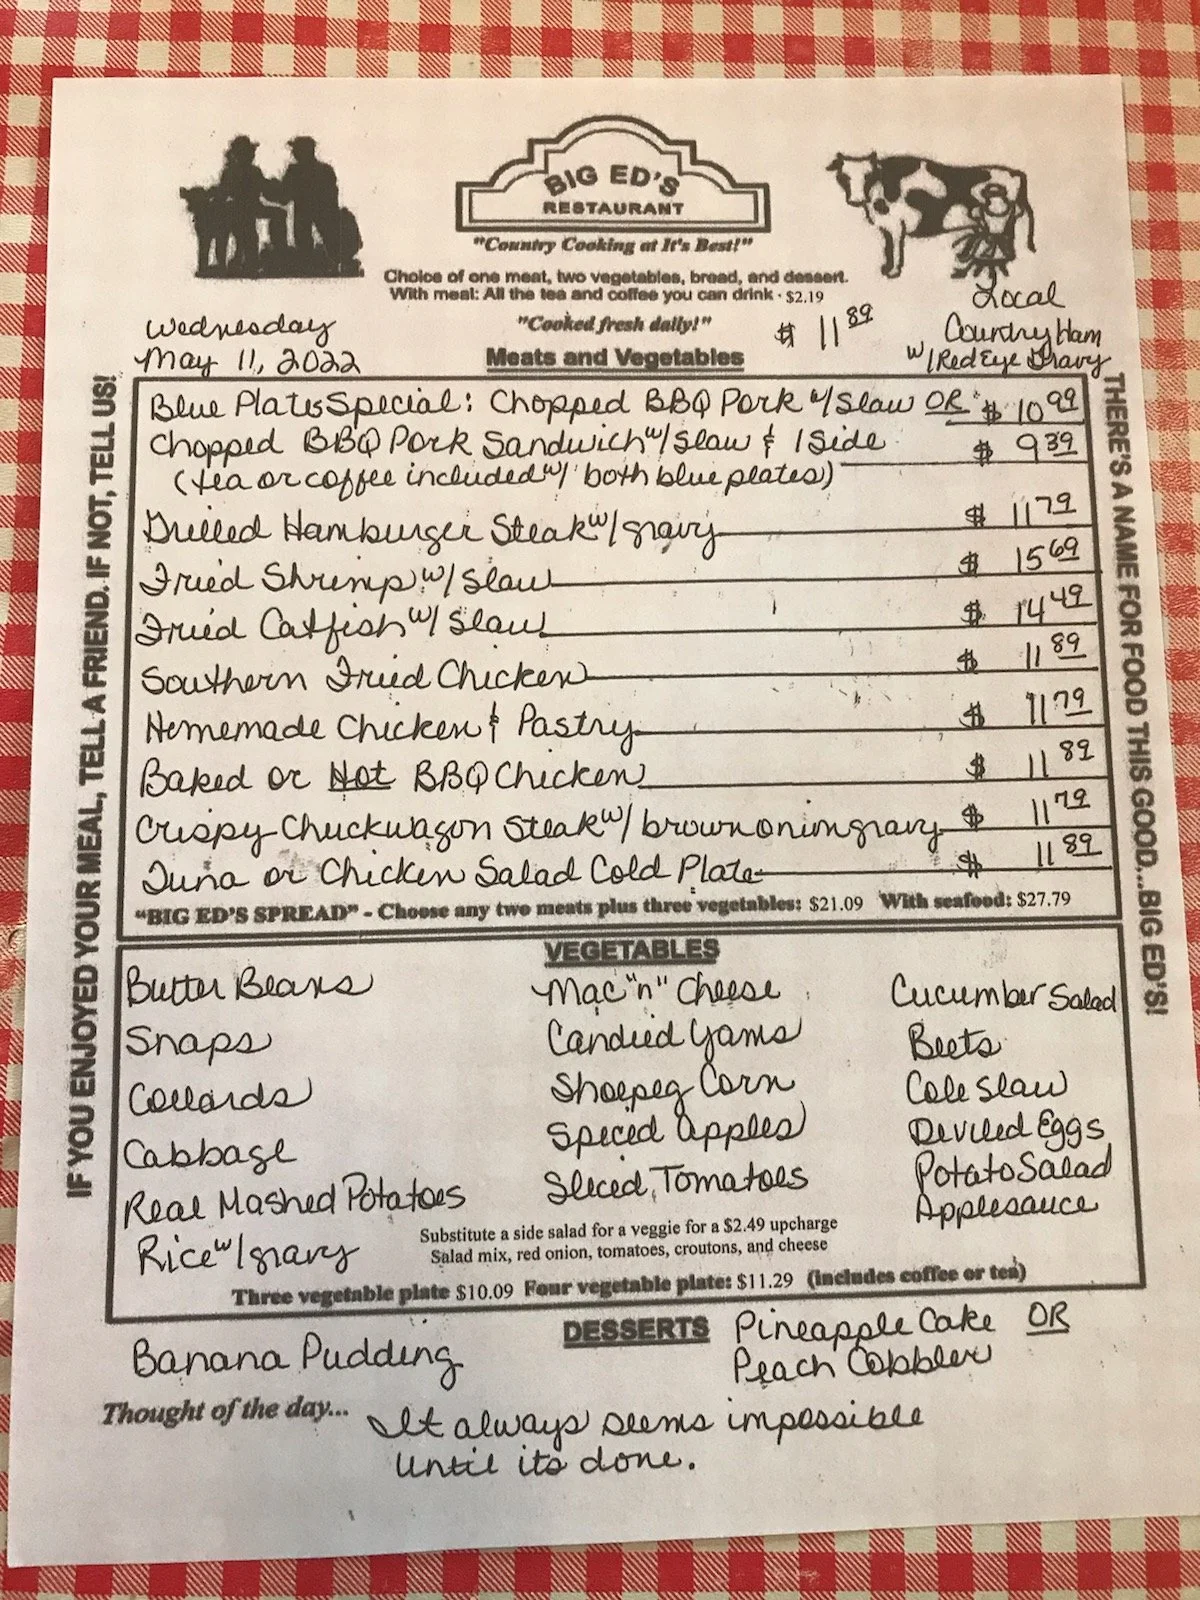 BIG ED'S
RESTAURANT
"Country Cooking at It's Best!"
Choice of one meat, two vegetables, bread, and dessert.
With meal: All the tea and coffee you can drink · $2.19
"Cooked fresh daily!"
Wednesday
May 11, 2022
$ 11 89
Local
Country Ham
w/Red Eye Gravy
Meats and Vegetables
IF YOU ENJOYED YOUR MEAL, TELL A FRIEND. IF NOT, TELL US!
THERE'S A NAME FOR FOOD THIS GOOD...BIG ED'S!
Blue Plates Special: Chopped BBQ Pork w/Slaw OR $ 10 99
Chopped BBQ Pork Sandwich w/Slaw & 1 Side $ 9 39
(tea or coffee included w/ both blue plates)
Grilled Hamburger Steak w/gravy $ 11 79
Fried Shrimp w/Slaw $ 15 69
Fried Catfish w/Slaw $ 14 49
Southern Fried Chicken $ 11 89
Homemade Chicken & Pastry $ 11 79
Baked or Hot BBQ Chicken $ 11 89
Crispy Chuckwagon Steak w/brown onion gravy $ 11 79
Tuna or Chicken Salad Cold Plate $ 11 89
"BIG ED'S SPREAD" - Choose any two meats plus three vegetables: $21.09 With seafood: $27.79
VEGETABLES
Butter Beans
Snaps
Collards
Cabbage
Real Mashed Potatoes
Rice w/gravy
Mac "n" Cheese
Candied Yams
Shoepeg Corn
Spiced Apples
Sliced Tomatoes
Cucumber Salad
Beets
Cole Slaw
Deviled Eggs
Potato Salad
Applesauce
Substitute a side salad for a veggie for a $2.49 upcharge
Salad mix, red onion, tomatoes, croutons, and cheese
Three vegetable plate $10.09 Four vegetable plate: $11.29 (includes coffee or tea)
DESSERTS
Banana Pudding
Pineapple Cake OR
Peach Cobbler
Thought of the day... It always seems impossible
until its done.